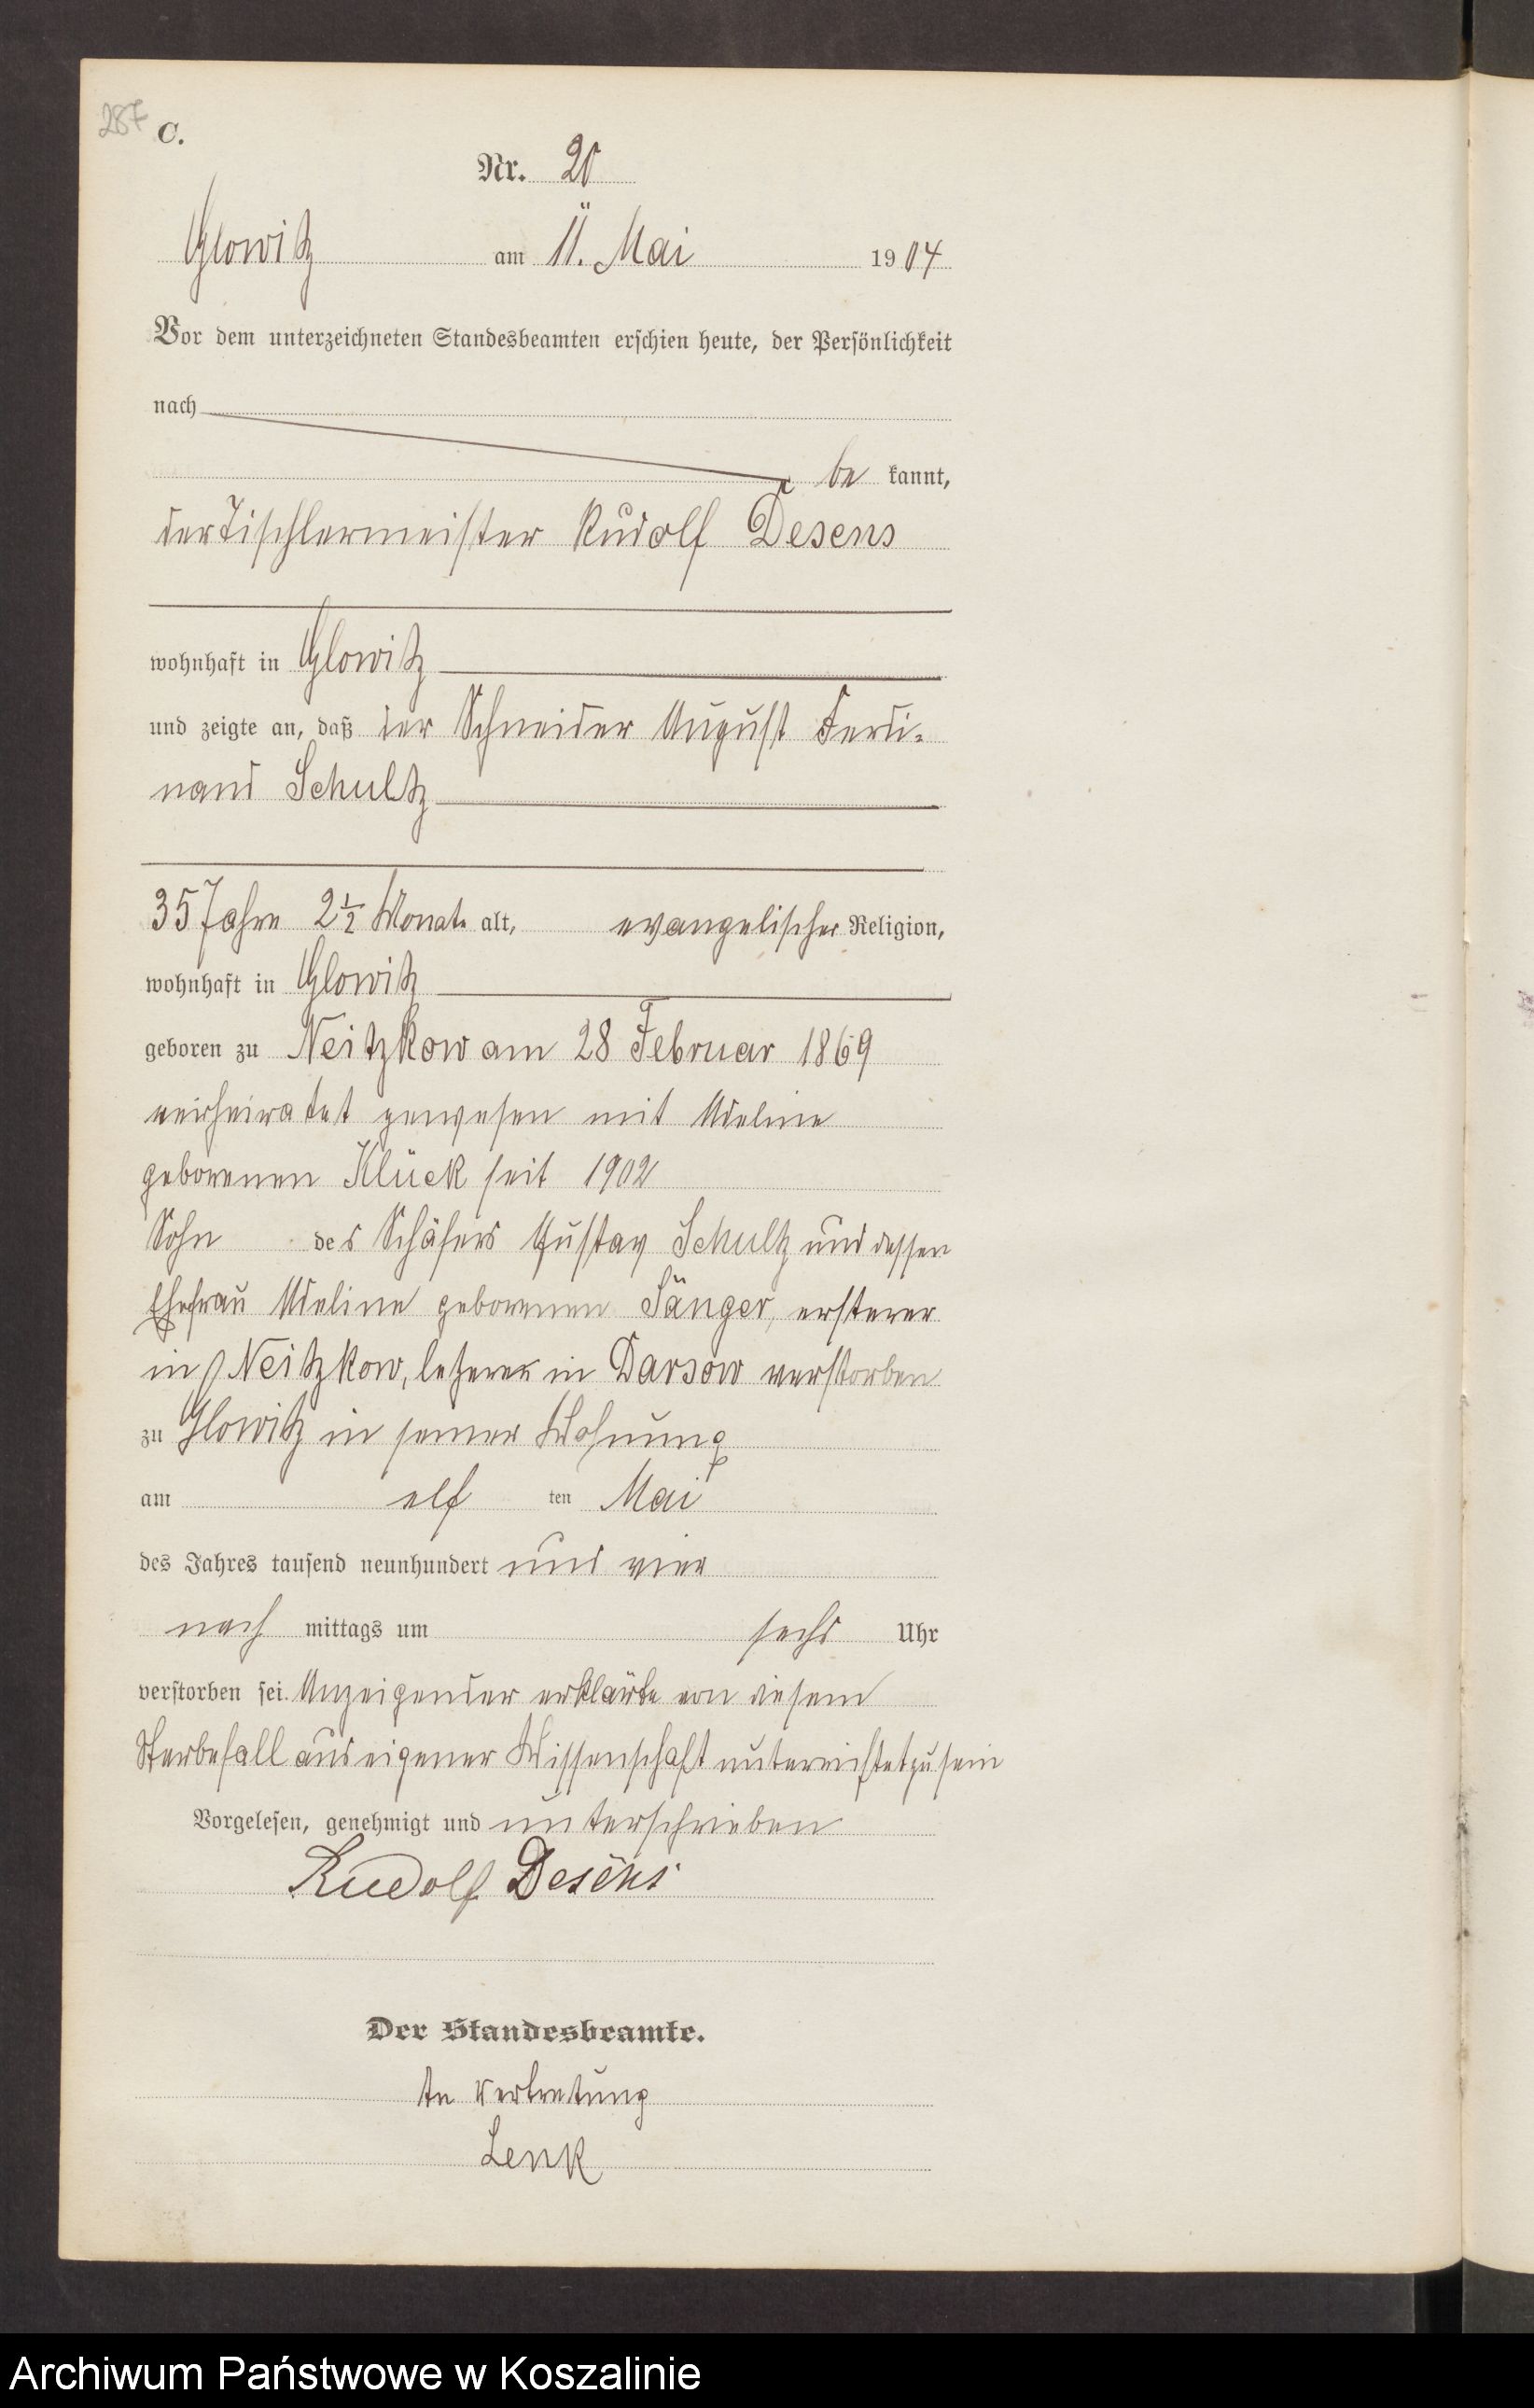 287 C.
Nr. 20
Glowitz am 11. Mai 1904
Vor dem unterzeichneten Standesbeamten erschien heute, der Persönlichkeit
nach
be kannt,
der Tischlermeister Rudolf Desens
wohnhaft in Glowitz
und zeigte an, daß der Schneider August Ferdi-
nand Schultz
35 Jahre 2 1/2 Monate alt, evangelischer Religion,
wohnhaft in Glowitz
geboren zu Neitzkow am 28 Februar 1869
verheiratet gewesen mit Adeline
geborenen Klück seit 1902
Sohn des Schäfers Gustav Schultz und dessen
Ehefrau Adeline geborenen Sänger, ersterer
in Neitzkow, letzere in Darsow verstorben
zu Glowitz in seiner Wohnung
am elf ten Mai
des Jahres tausend neunhundert und vier
nach mittags um sechs Uhr
verstorben sei. Anzeigender erklärte von diesem
Sterbefall aus eigener Wissenschaft unterrichtet zu sein
Vorgelesen, genehmigt und unterschrieben
Rudolf Desens
Der Standesbeamte.
In Vertretung
Lenk
Archiwum Państwowe w Koszalinie